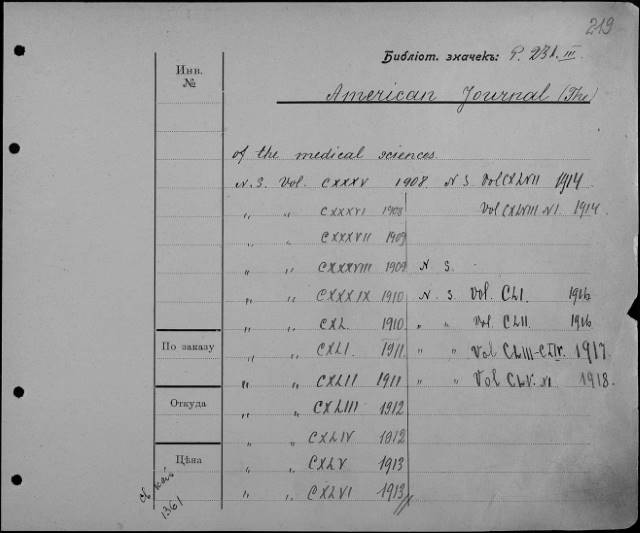 219
Библіот. значекъ: P. 231.III.
Инв. №
American Journal (The)
of the medical sciences.
N. S. Vol. CXXXV 1908. N S Vol CXLVII 1914
„ „ CXXXVI 1908 Vol CXLVIII N1. 1914.
CXXXVII 1909
„ „ CXXXVIII 1909 N S.
„ „ CXXXIX 1910 N. S Vol. CLI. 1916
„ „ CXL. 1910 „ „ Vol. CLII. 1916
По заказу
„ „ CXLI. 1911 „ „ Vol CLIII-CLIV. 1917
„ „ CXLII 1911 „ „ Vol CLV. N1 1918.
Откуда
„ „ CXLIII 1912
„ „ CXLIV 1912
Цѣна
„ „ CXLV 1913
„ „ CXLVI 1913
1361